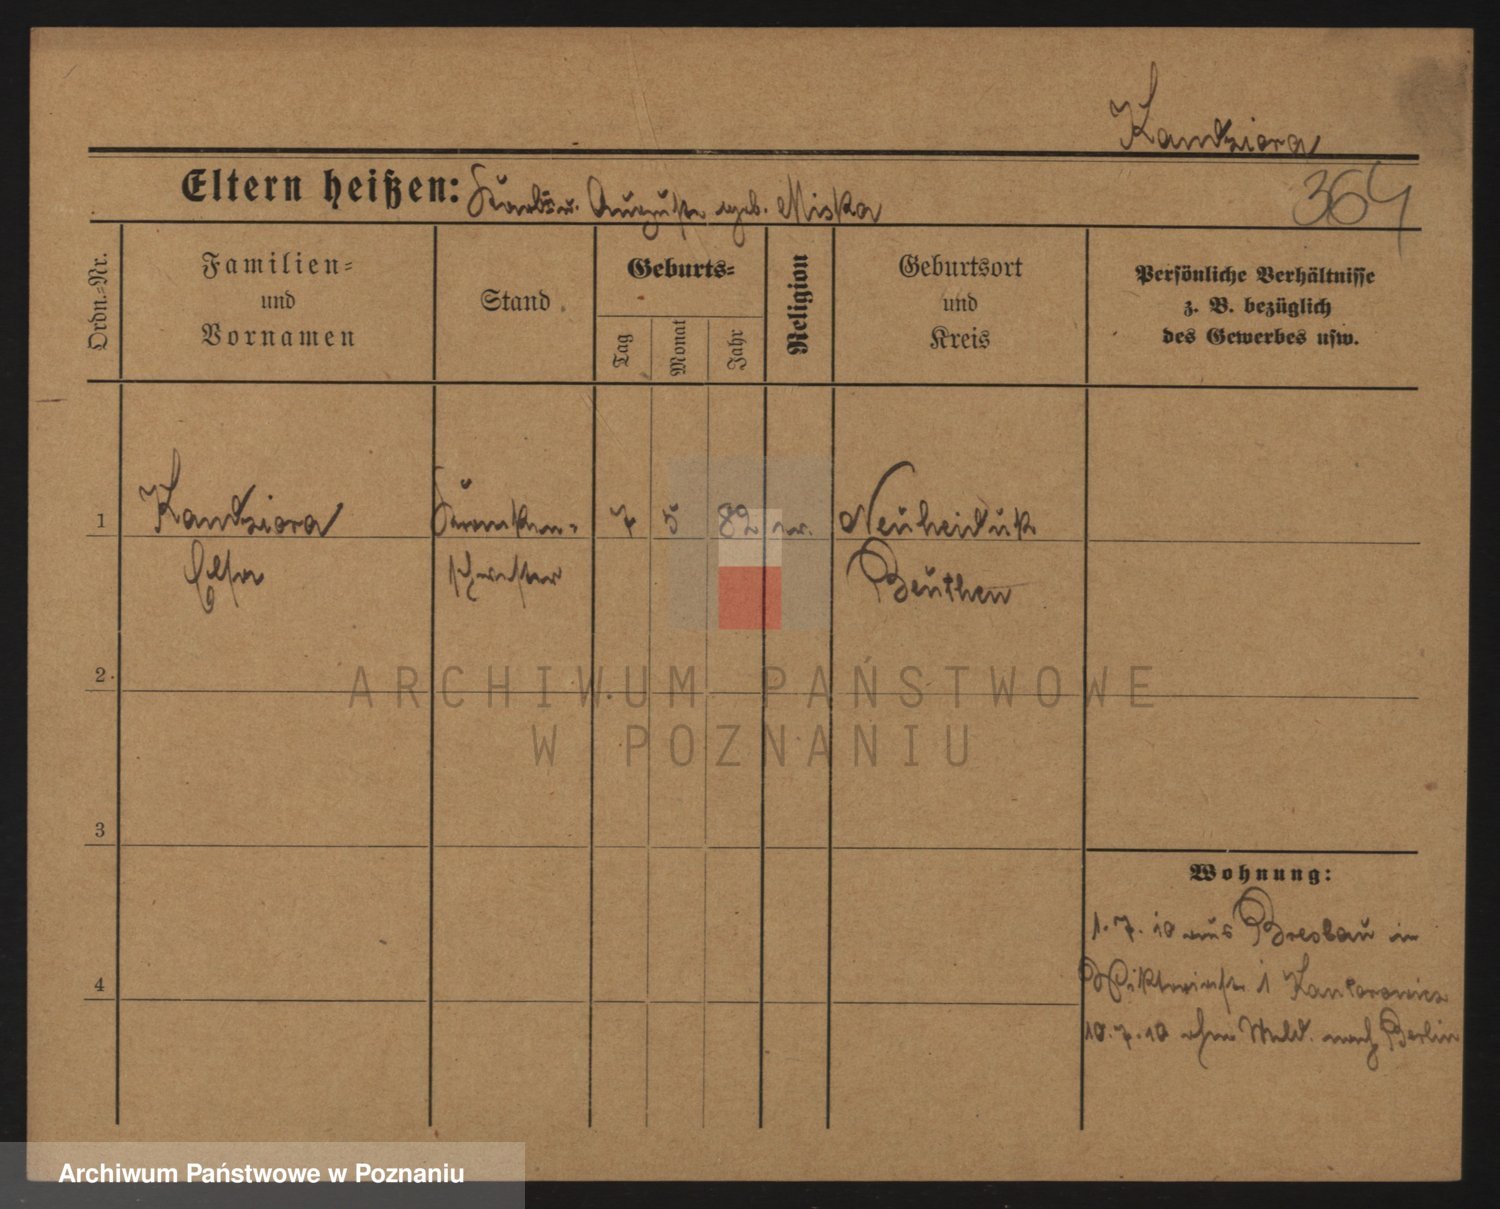 Kandziora
Eltern heißen: Karl u. Auguste geb. Miska
364
Ordn.-Nr.
Familien-
und
Vornamen
Stand
Geburts-
Tag
Monat
Jahr
Religion
Geburtsort
und
Kreis
Persönliche Verhältnisse
z. B. bezüglich
des Gewerbes usw.
1 Kandziora Kranken- 7 5 82 ev. Neuheiduk
Elsa schwester Beuthen
2
ARCHIWUM PAŃSTWOWE
W POZNANIU
3
Wohnung:
1.7.10 aus Breslau in
Viktoriastr. 1 Kantorowicz
4
10.7.10 ohne Meld. nach Berlin
Archiwum Państwowe w Poznaniu